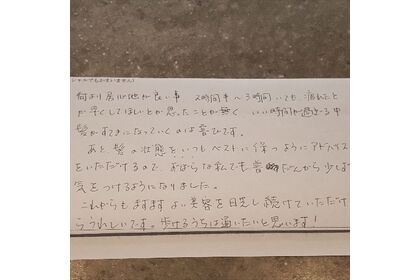 シャルでもかまいません)
何より居心地が良い事 2時間半〜3時間いても、疲れたと
か早くしてほしいとか思ったことが無く、いい時間が過ぎる中
髪がすてきになっていくのは喜びです。
あと、髪の状態をいつもベストに保つようにアドバイス
をいただけるので、ずぼらな私でも普だんから少しは
気をつけるようになりました。
これからもますますよい美容を目ざし続けていただけ
らうれしいです。歩けるうちは通いたいと思います!